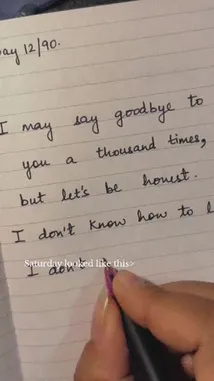 Day 12/90.
I may say goodbye to
you a thousand times,
but let's be honest.
I don't know how to
I don't
Saturday looked like this>